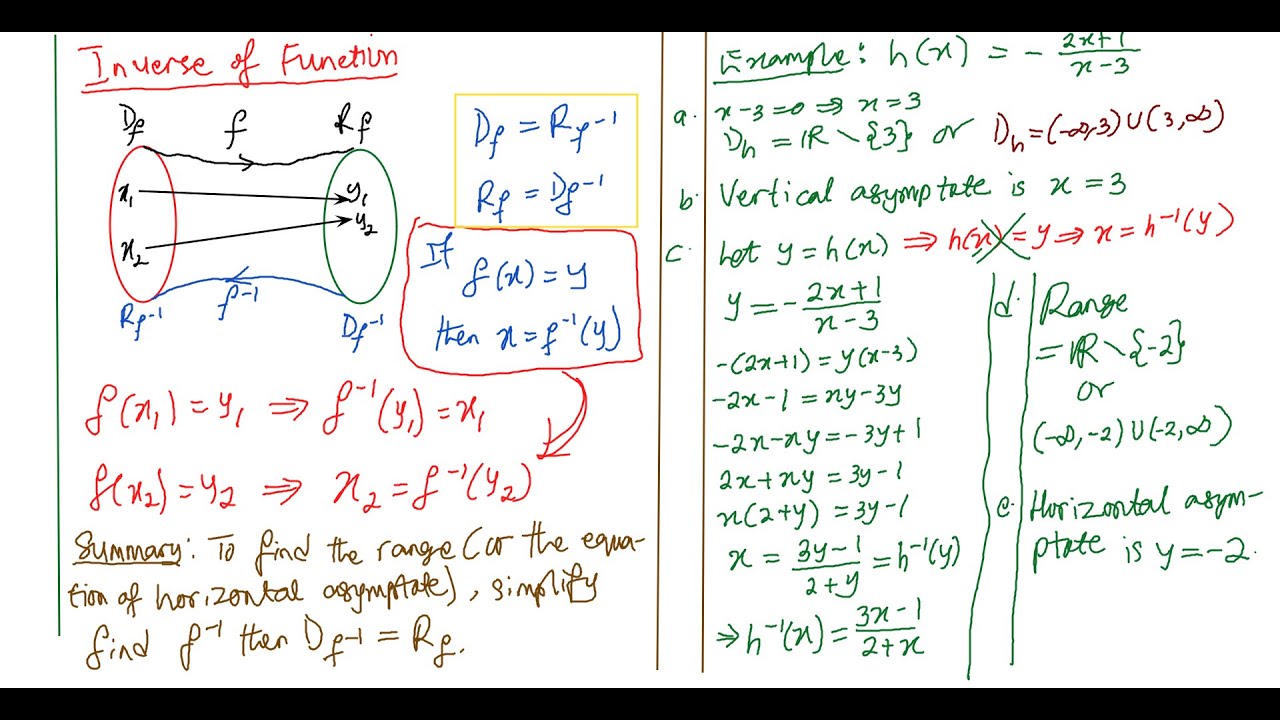 Inverse of Function
D_f f R_f
x₁ y₁
x₂ y₂
R_f⁻¹ f⁻¹ D_f⁻¹
D_f = R_f⁻¹
R_f = D_f⁻¹
If
f(x) = y
then x = f⁻¹(y)
f(x₁) = y₁ ⇒ f⁻¹(y₁) = x₁
f(x₂) = y₂ ⇒ x₂ = f⁻¹(y₂)
Summary: To find the range (or the equa-
tion of horizontal asymptate), simplify
find f⁻¹ then D_f⁻¹ = R_f.
Example: h(x) = - (2x+1)/(x-3)
a. x-3=0 ⇒ x=3
D_h = ℝ \ {3} or D_h = (-∞,3) ∪ (3,∞)
b. Vertical asymptate is x = 3
c. Let y = h(x) ⇒ h(x) = y ⇒ x = h⁻¹(y)
y = - (2x+1)/(x-3)
-(2x+1) = y(x-3)
-2x-1 = xy-3y
-2x-xy = -3y+1
2x+xy = 3y-1
x(2+y) = 3y-1
x = (3y-1)/(2+y) = h⁻¹(y)
⇒ h⁻¹(x) = (3x-1)/(2+x)
d. Range
= ℝ \ {-2}
or
(-∞,-2) ∪ (-2,∞)
e. Horizontal asym-
ptate is y = -2.